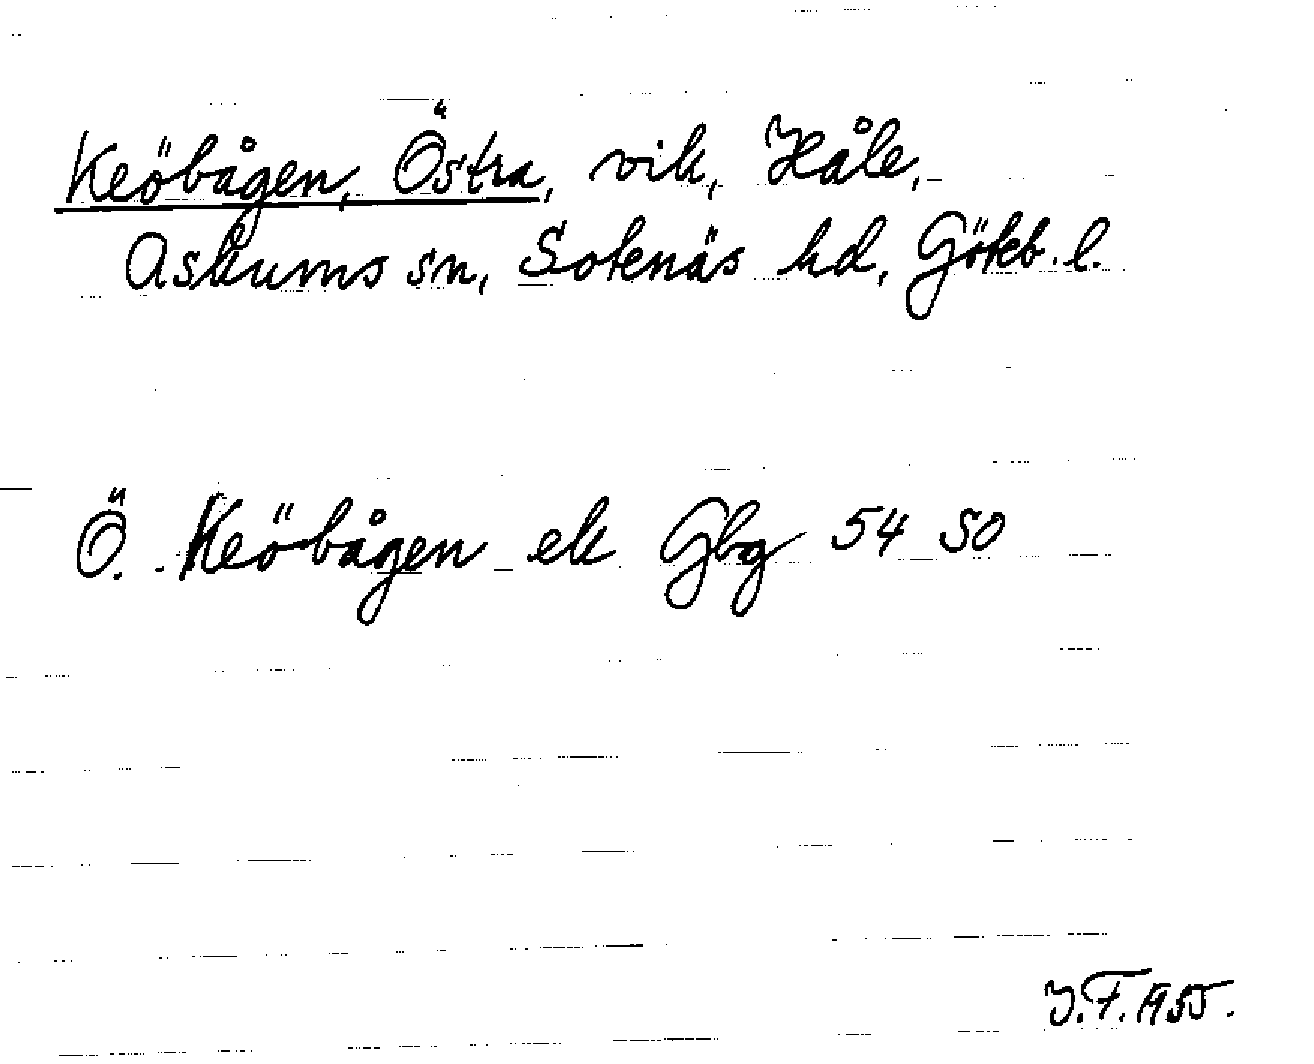 Keöbågen, Östra, vik, Håle,
Askums sn, Sotenäs hd, Göteb. l.
Ö. Keöbågen ek Gbg 54 SO
J.F. 1955.